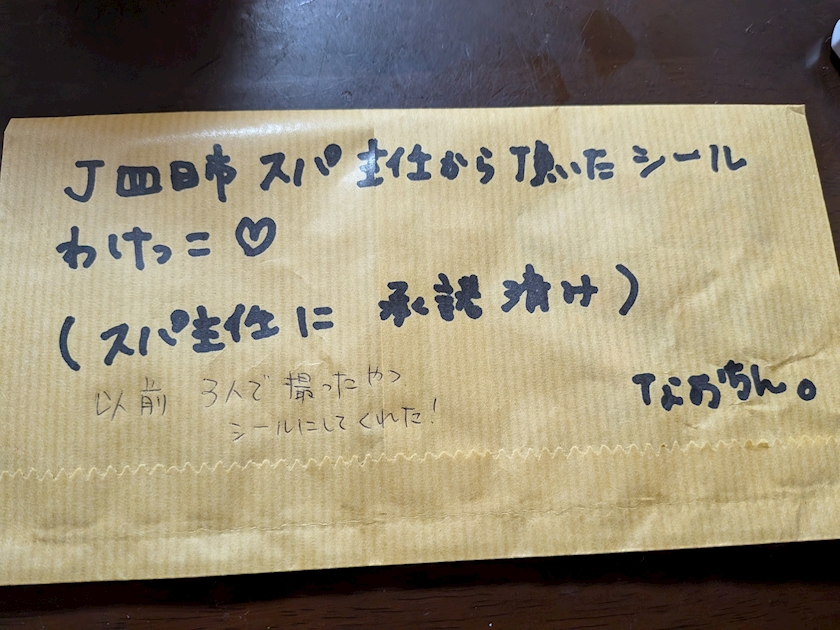 J四日市 スパ主任から頂いた シール
わけっこ♡
(スパ主任に 承認済け)
以前 3人で撮ったやつ
シールにしてくれた!
なおちん。